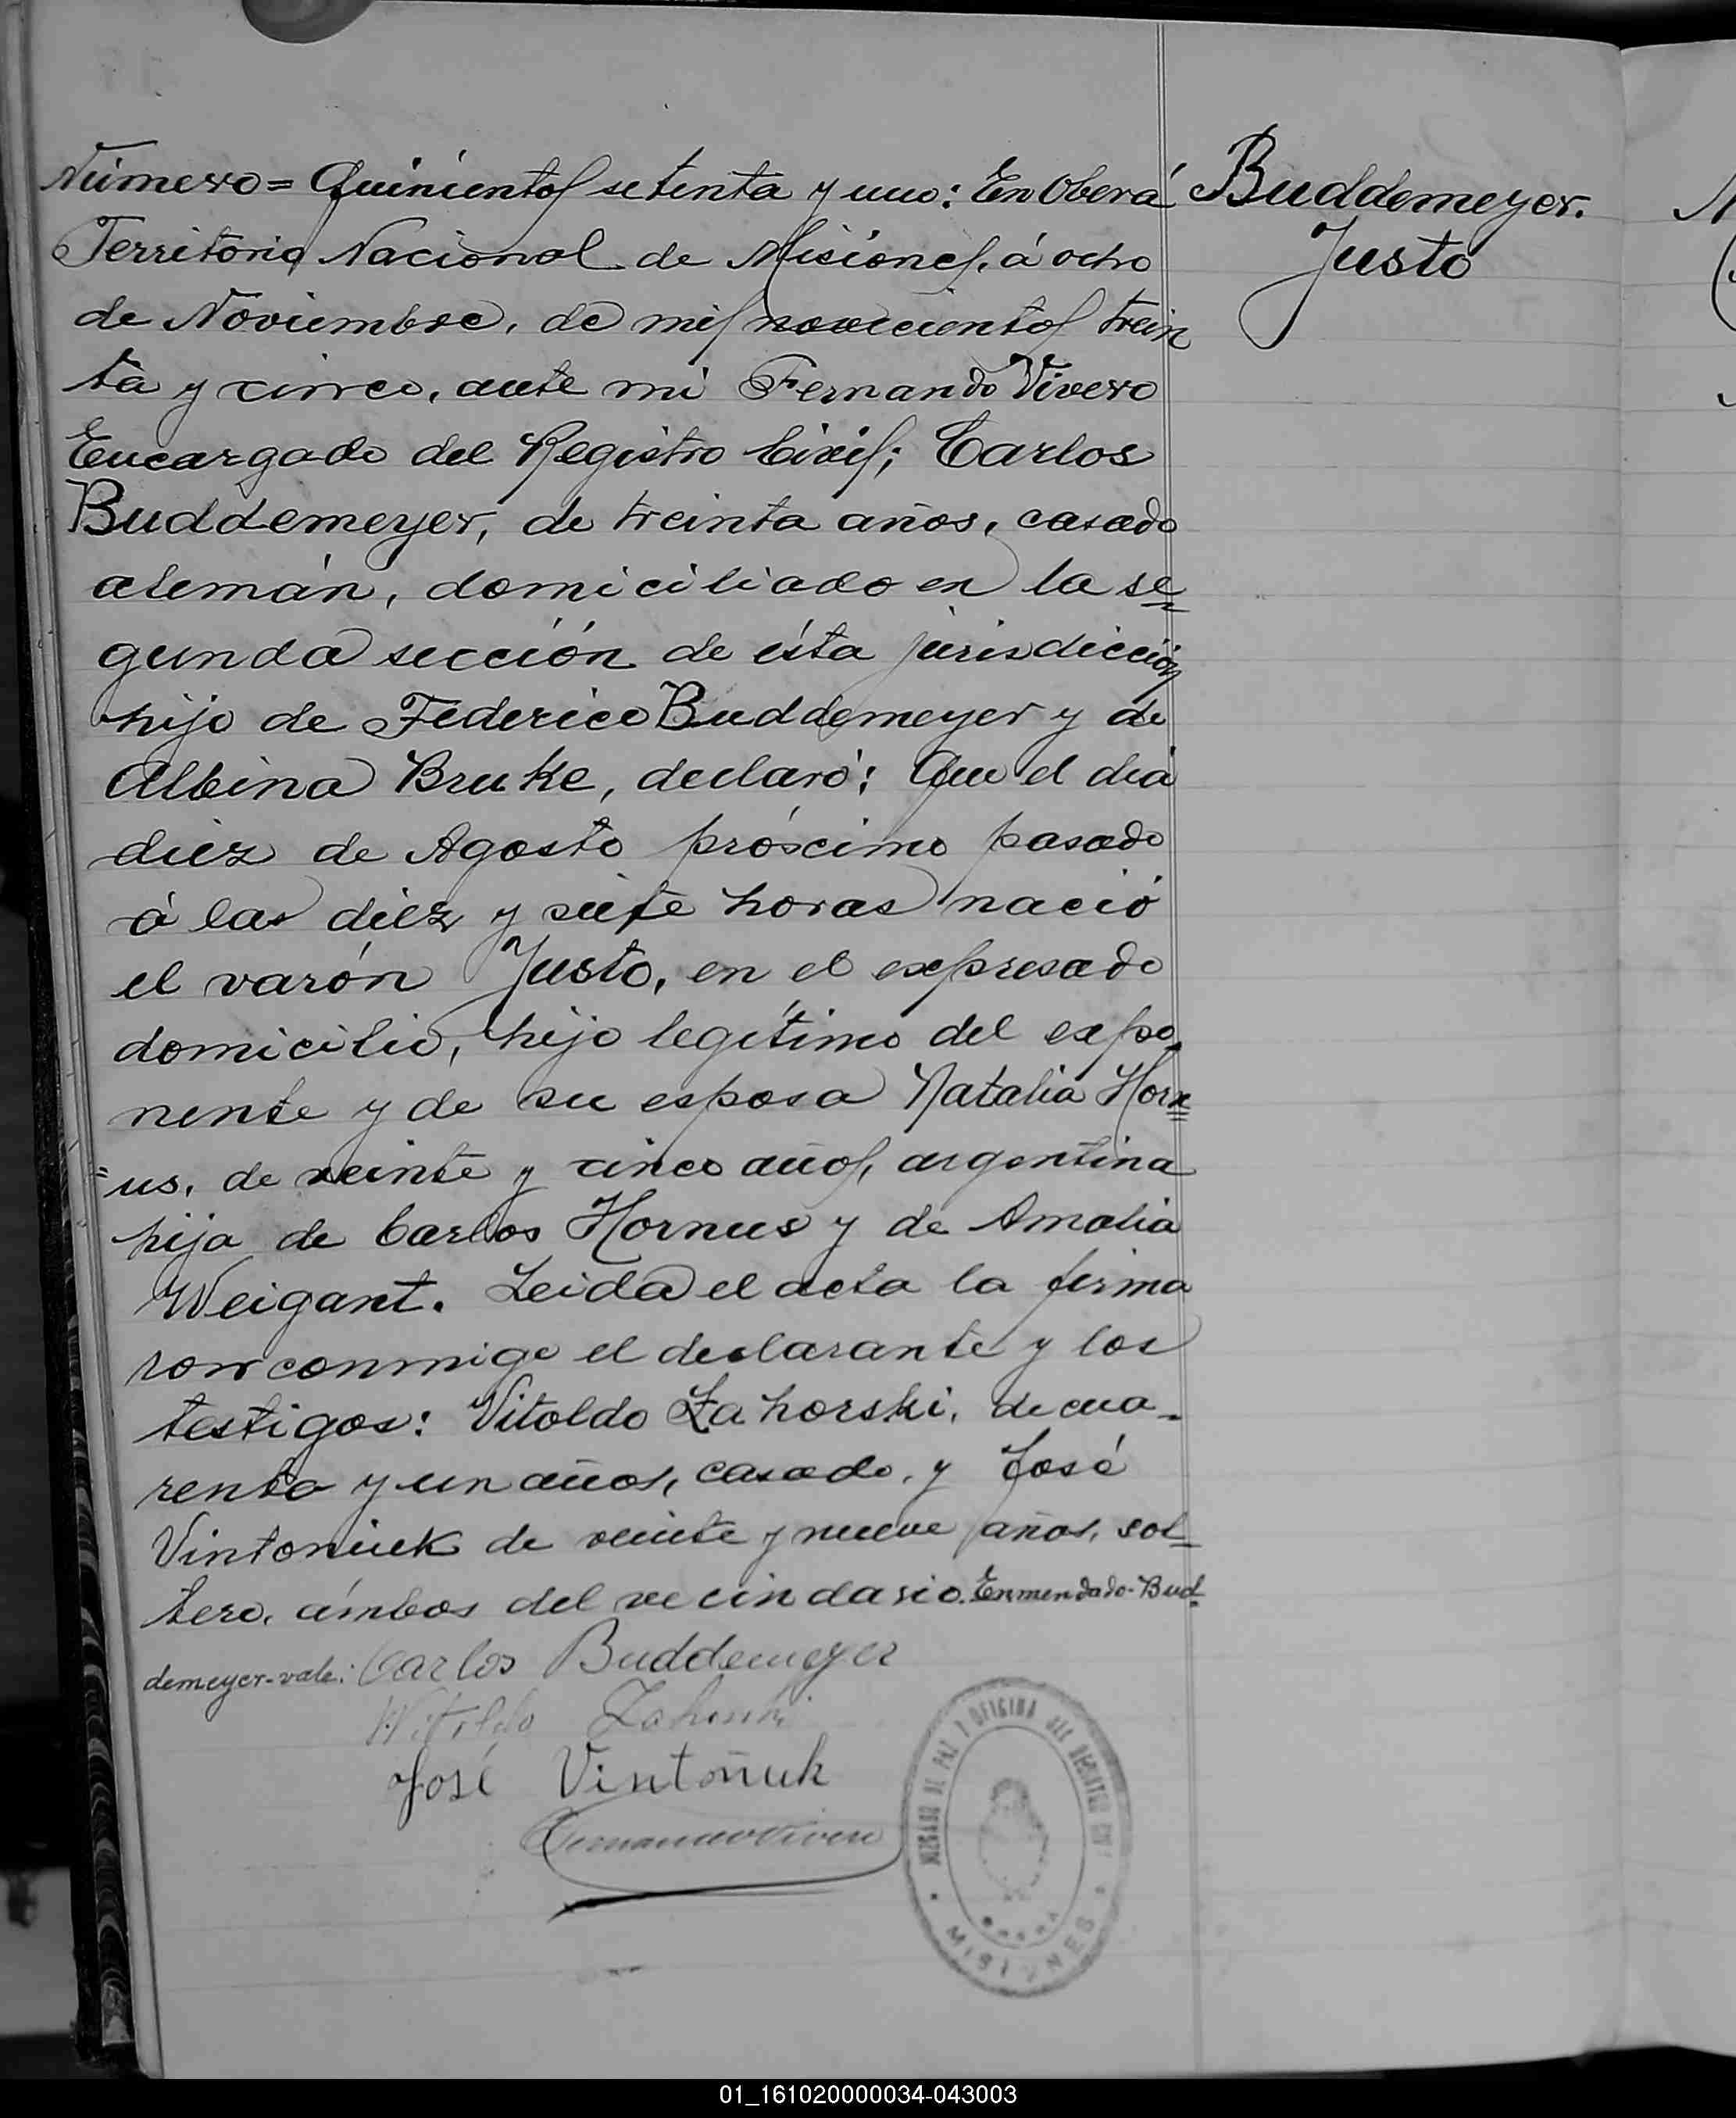 Número = Quinientos setenta y uno: En Oberá
Buddemeyer.
Justo
Territorio Nacional de Misiones, á ocho
de Noviembre, de mil novecientos trein
ta y cinco, ante mi Fernando Vivero
Encargado del Registro Civil; Carlos
Buddemeyer, de treinta años, casado
alemán, domiciliado en la se=
gunda sección de ésta jurisdicción
hijo de Federico Buddemeyer y de
Albina Bruke, declaró: Que el día
diez de Agosto próscimo pasado
á las diez y siete horas nació
el varón Justo, en el expresado
domicilio, hijo legítimo del expo-
nente y de su esposa Natalia Horn=
=us, de veinte y cinco años, argentina
hija de Carlos Hornus y de Amalia
Weigant. Leida el acta la firma
ron conmigo el declarante y los
testigos: Vitoldo Zahorski, de cua-
renta y un años, casado, y José
Vintoniuk de veinte y nueve años, sol=
tero, ámbos del vecindario. Enmendado-Bud=
demeyer-vale: Carlos Buddemeyer
Witoldo Zahorski
José Vintoñuk
Fernando Vivero
JUZGADO DE PAZ Y OFICINA DEL REGISTRO CIVIL
OBERA
MISIONES
01_161020000034-043003